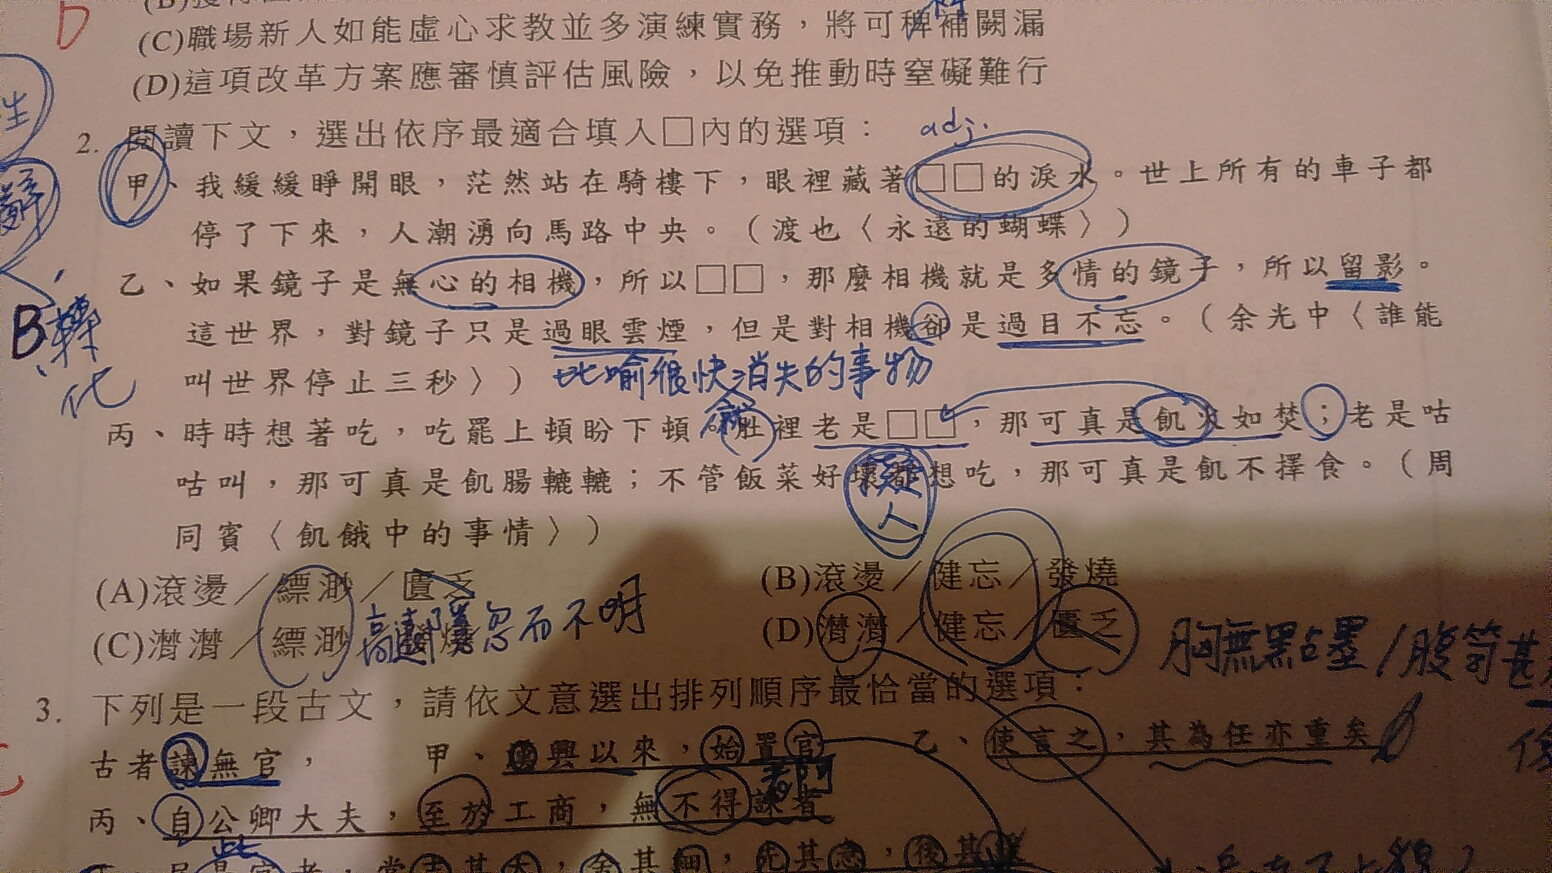 (C)職場新人如能虛心求教並多演練實務，將可稗補闕漏
(D)這項改革方案應審慎評估風險，以免推動時窒礙難行
2. 閱讀下文，選出依序最適合填入□內的選項：
adj.
甲、我緩緩睜開眼，茫然站在騎樓下，眼裡藏著□□的淚水。世上所有的車子都
停了下來，人潮湧向馬路中央。（渡也〈永遠的蝴蝶〉）
乙、如果鏡子是無心的相機，所以□□，那麼相機就是多情的鏡子，所以留影。
這世界，對鏡子只是過眼雲煙，但是對相機卻是過目不忘。（余光中〈誰能
叫世界停止三秒〉）
比喻很快消失的事物
B.轉化
丙、時時想著吃，吃罷上頓盼下頓，肚裡老是□□，那可真是飢火如焚；老是咕
咕叫，那可真是飢腸轆轆；不管飯菜好壞都想吃，那可真是飢不擇食。（周
擬人
同賓〈飢餓中的事情〉）
(A)滾燙／縹渺／匱乏
(B)滾燙／健忘／發燒
(C)潸潸／縹渺
(D)潸潸／健忘／匱乏
忽而不明
胸無點墨/腹笥甚
3. 下列是一段古文，請依文意選出排列順序最恰當的選項：
古者諫無官，
甲、興以來，始置官
乙、使言之，其為任亦重矣
丙、自公卿大夫，至於工商，無不得諫者